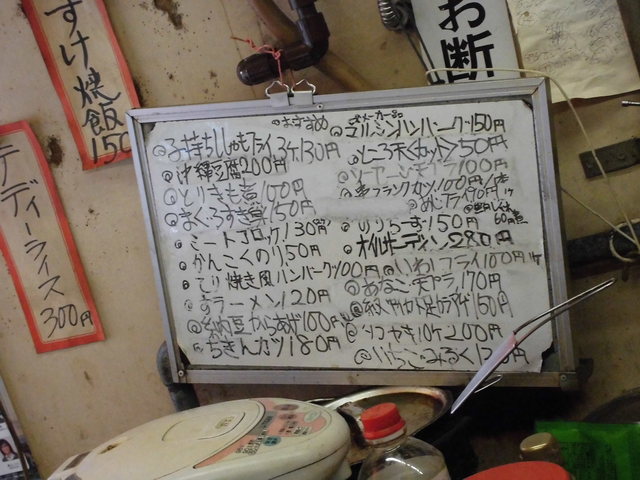 すけ焼飯
150
テディーライス
300円
お断
おすすめ
子持ちししゃもフライ3ケ130円
沖縄豆腐200円
とりきも煮100円
まぐろすき煮150円
ミートコロッケ130円
かんこくのり50円
てり焼き風ハンバーグ100円
すラーメン120円
納豆からあげ100円
ちきんカツ180円
メーカー品
マルシンハンバーグ150円
ところ天
50円
100円
串フランクカツ100円/1本
めじフライ90円
60円
のりらーす150円
オイルサーディン280円
いわしフライ100円1ケ
あなご天プラ170円
150円
タコヤキ10ケ200円
いちごみるく